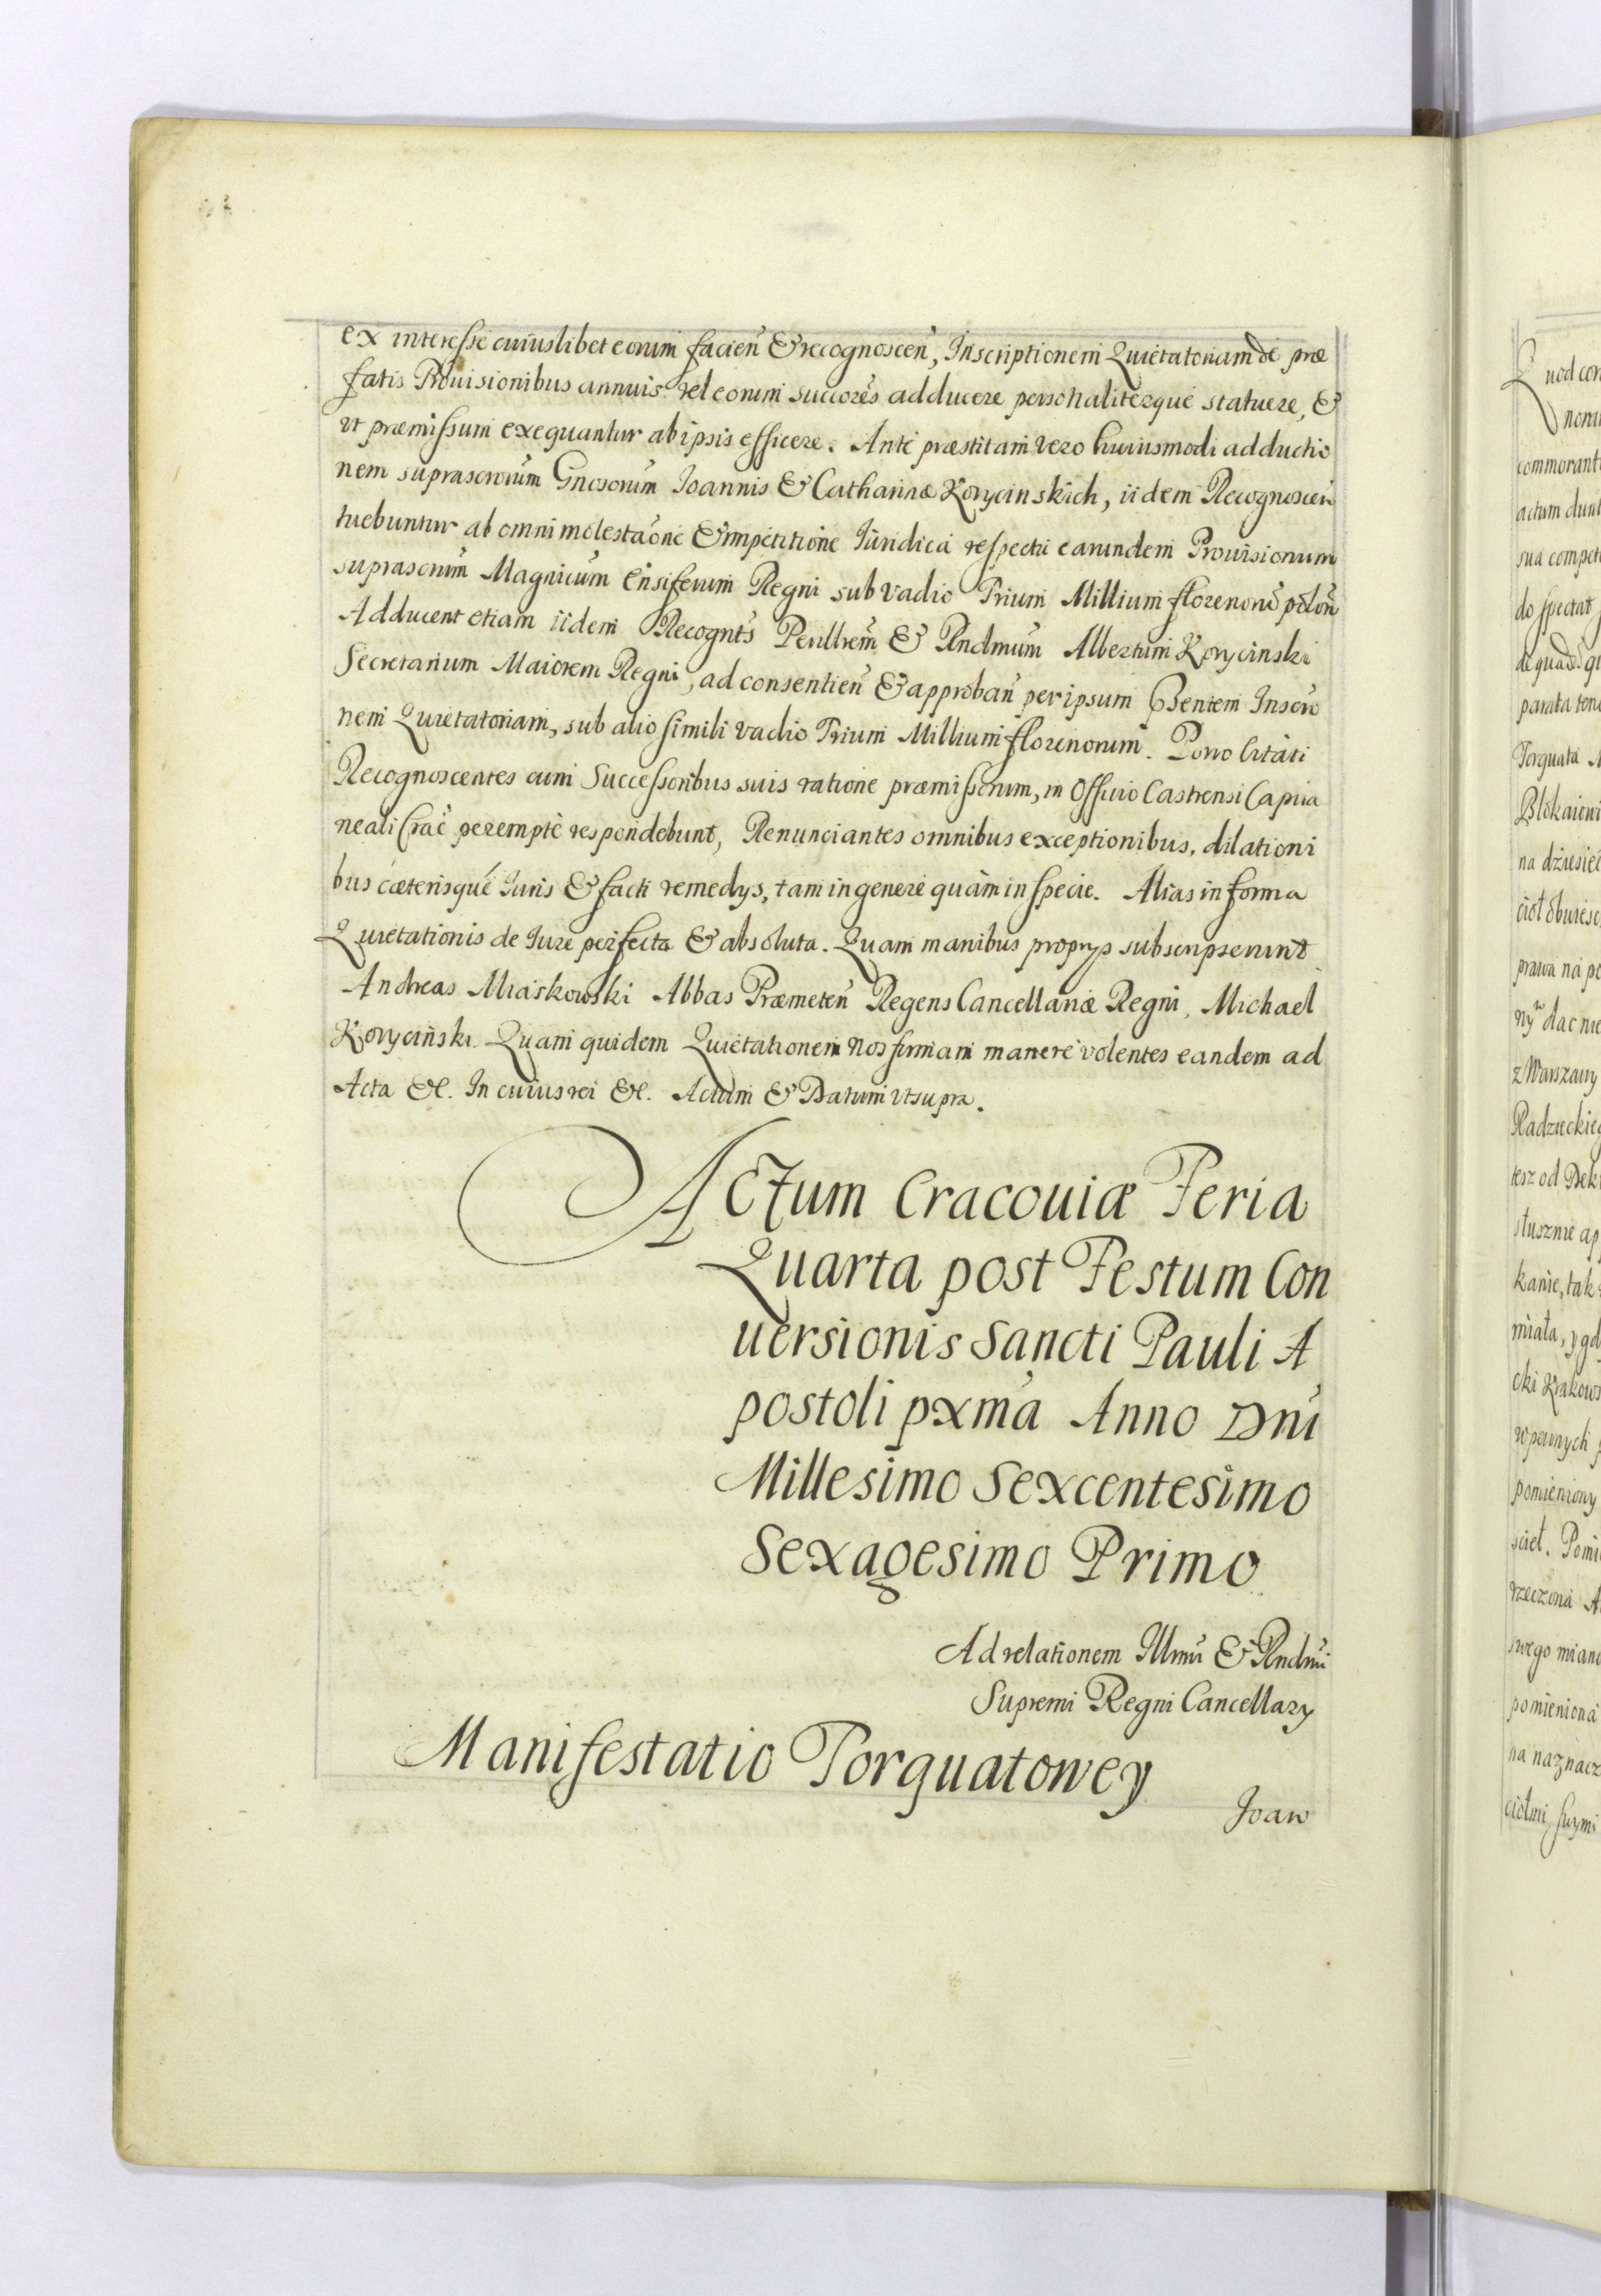 ex interesse cuiuslibet eorum facien̄ & recognoscen̄, Inscriptionem Quietatoriam de præ
fatis Prouisionibus annuis vel eorum succores adducere personaliterque statuere, &
ut præmissum exequantur ab ipsis efficere. Ante præstitam vero huiusmodi adductio
nem suprascrorum Gnosorum Joannis & Catharinæ Korycinskich, iidem Recognoscen
tuebuntur ab omni molestaone & impetitione Juridica respectu earundem Prouisionum
suprascrum Magnicum Ensiferum Regni sub vadio Trium Millium florenorū polon̄
Adducent etiam iidem Recognts Perillrem & Rndmum Albertum Korycinski
Secretarium Maiorem Regni, ad consentien̄ & approban̄ per ipsum Psentem Inscrio
nem Quietatoriam, sub alio simili vadio Trium Millium florenorum. Porro Citati
Recognoscentes cum Successoribus suis ratione præmissorum, in Officio Castrensi Capita
neali Crac̄ perempte respondebunt, Renunciantes omnibus exceptionibus, dilationi
bus cæterisqué Juris & facti remedys, tam in genere quàm in specie. Alias in forma
Quietationis de Jure perfecta & absoluta. Quam manibus proprys subscripserunt
Andreas Miaskowski Abbas Præmeten̄ Regens Cancellariæ Regni, Michael
Koryciński. Quam quidem Quietationem nos firmam manere volentes eandem ad
Acta &c. In cuius rei &c. Actum & Datum ut supra.
Actum Cracouiæ Feria
Quarta post Festum Con
uersionis Sancti Pauli A
postoli pxma Anno Dnī
Millesimo Sexcentesimo
Sexagesimo Primo
Ad relationem Illmi & Rndmi
Supremi Regni Cancellary
Manifestatio Torquatowey
Joan
Quod cor
commorant
actum dunt
sua compet
do spectat
parata ten
Torquata
Blokaicni
na dziesieć
prawa na po
ny dac nie
z Warszawy
Radzieckieg
tesz od Dek
słusznie ap
kanie, tak
miała, y gd
cki Krakows
w pewnych
pomieniony
rzeczona A
swego mian
pomieniona
na naznacz
ciołmi swymi